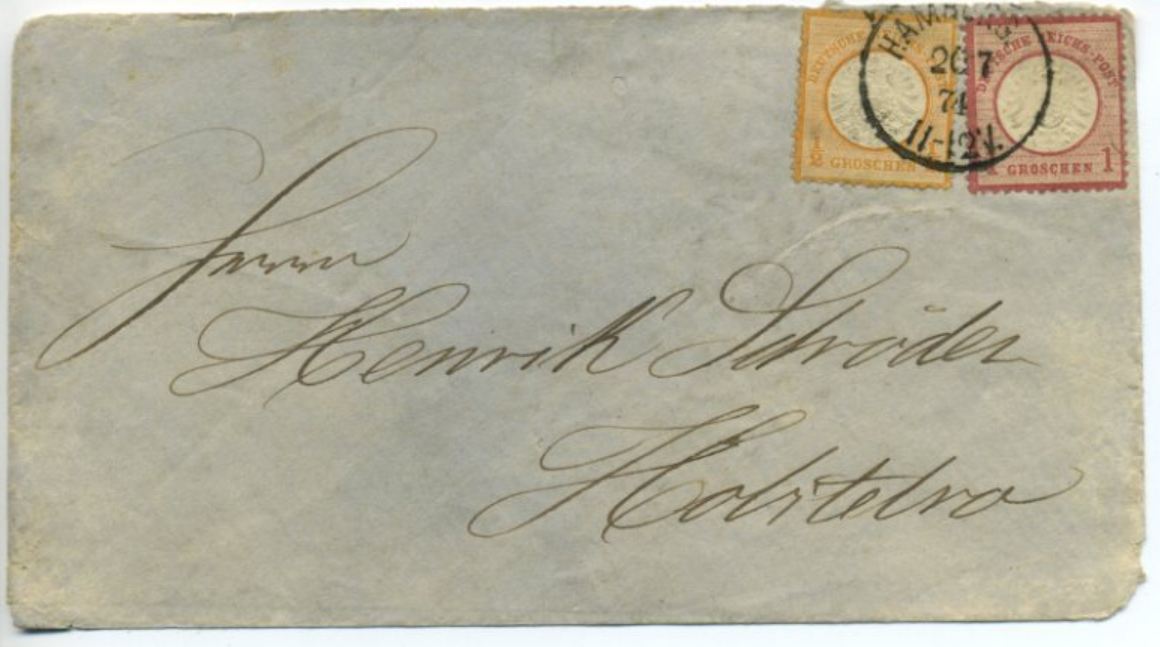 HAMBURG
26 7
74
11-12 V.
DEUTSCHE REICHS-POST
1/2 GROSCHEN
DEUTSCHE REICHS-POST
1 GROSCHEN 1
Herrn
Henrik Schröder
Holstebro